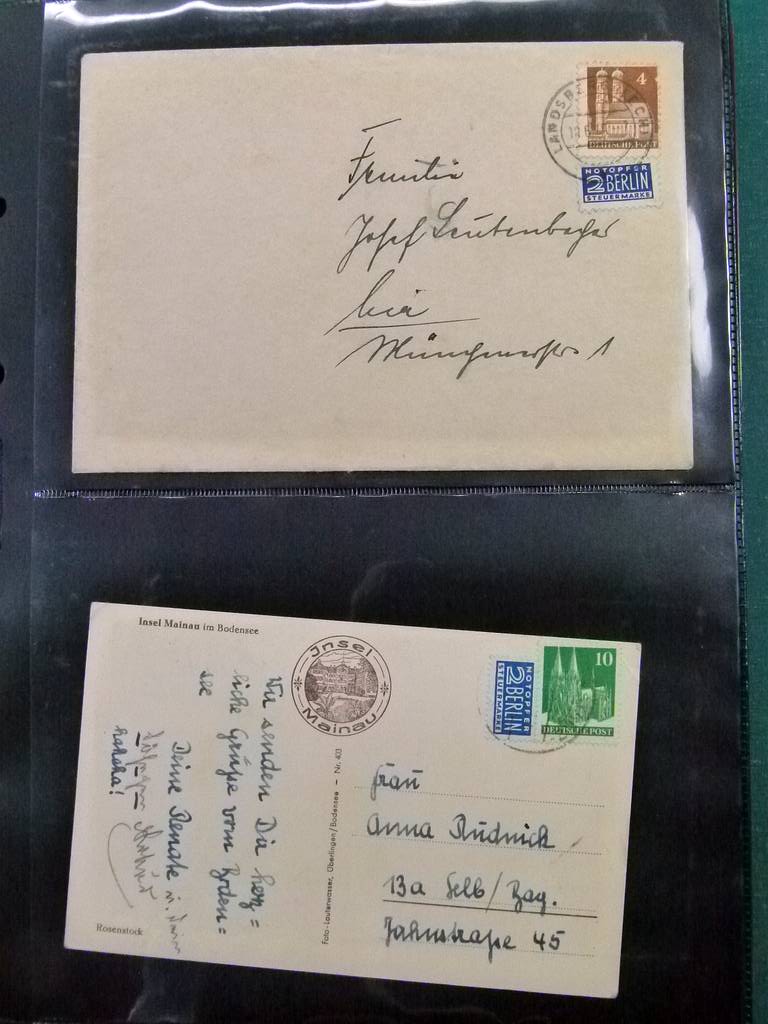 4
DEUTSCHE POST
LANDSBERG
NOTOPFER
2 BERLIN
STEUERMARKE
Familie
Josef Leutenbacher
hier
Münchnerstr. 1
Insel Mainau im Bodensee
Insel
Mainau
Wir senden Dir herz=
liche Grüße vom Boden=
see
Deine Renate u.
hahaha!
Rosenstock
Foto-Lauterwasser, Überlingen/Bodensee – Nr. 403
NOTOPFER
2 BERLIN
STEUERMARKE
10
DEUTSCHE POST
Frau
Anna Rudnick
13a Selb/Bay.
Jahnstraße 45